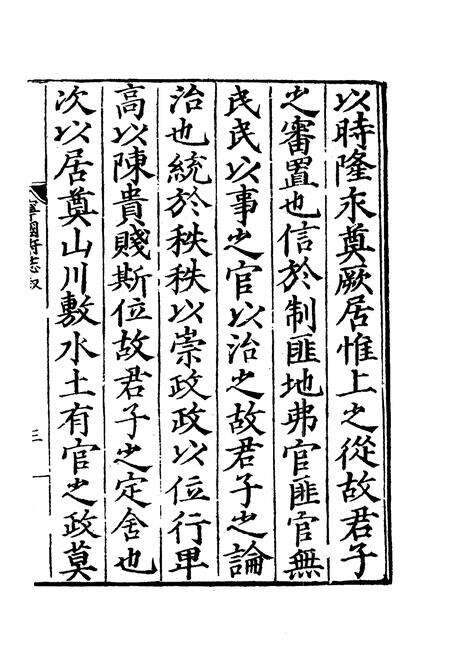 以時隆永奠厥居惟上之從故君子
之審置也信於制匪地弗官匪官無
民民以事之官以治之故君子之論
治也統於秩秩以崇政政以位行卑
高以陳貴賤斯位故君子之定舍也
次以居奠山川敷水土有官之政莫
寧國府志叙
三